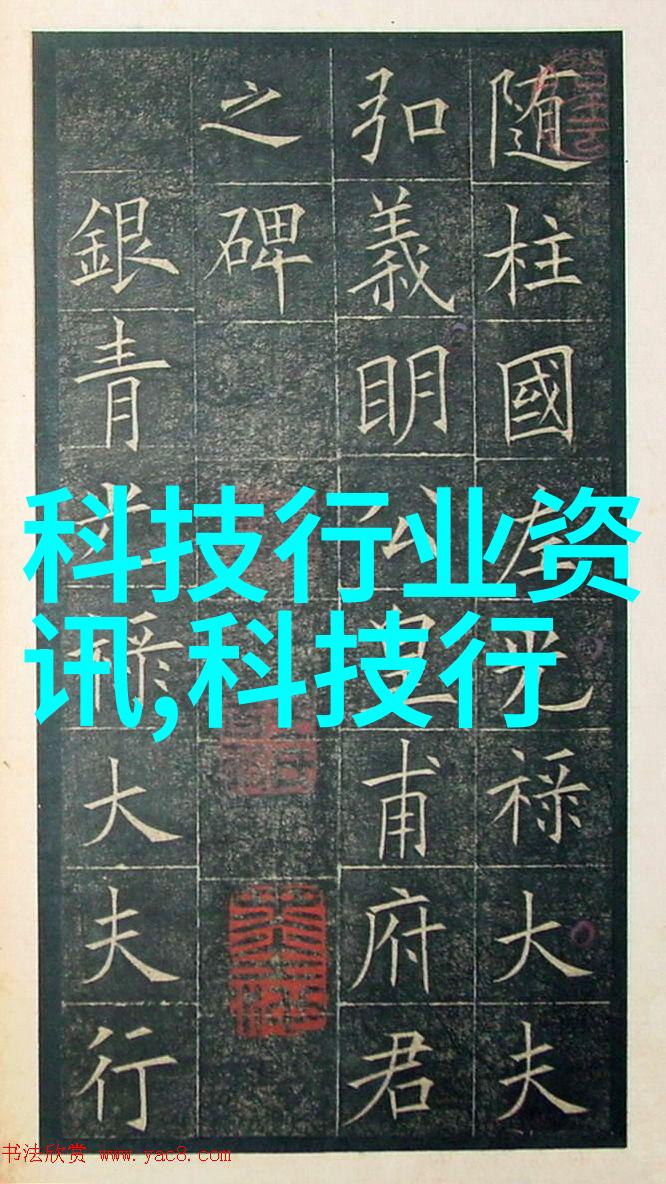 随柱國左光祿大夫
弘義明公皇甫府君
之碑
銀青光祿大夫行
科技行业资
讯,科技行
书法欣赏 www.yac8.com